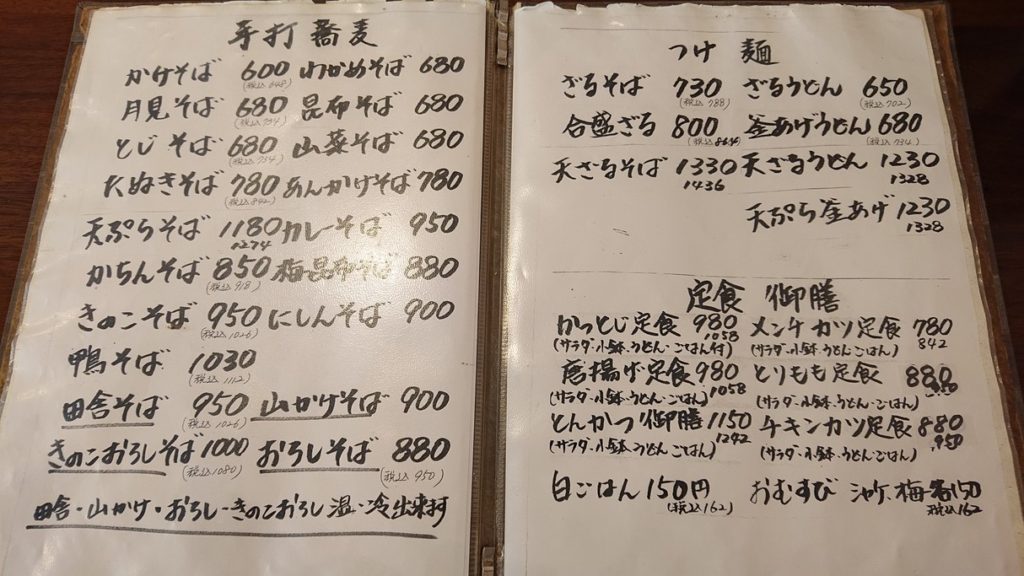 手打蕎麦
かけそば 600 わかめそば 680
(税込648)
月見そば 680 昆布そば 680
(税込734)
とじそば 680 山菜そば 680
(税込734)
たぬきそば 780 あんかけそば 780
(税込842)
天ぷらそば 1180 カレーそば 950
1274
かちんそば 850 梅昆布そば 880
(税込918)
きのこそば 950 にしんそば 900
(税込1026)
鴨そば 1030
(税込1112)
田舎そば 950 山かけそば 900
(税込1026)
きのこおろしそば 1000 おろしそば 880
(税込1080) (税込950)
田舎・山かけ・おろし・きのこおろし温・冷出来ます
つけ麺
ざるそば 730 ざるうどん 650
(税込788) (税込702)
合盛ざる 800 釜あげうどん 680
(税込864) (税込734)
天ざるそば 1330 天ざるうどん 1230
1436 1328
天ぷら釜あげ 1230
1328
定食 御膳
かつとじ定食 980 メンチカツ定食 780
1058 842
(サラダ・小鉢・うどん・ごはん付) (サラダ・小鉢・うどん・ごはん)
唐揚げ定食 980 とりもも定食 880
1058
(サラダ・小鉢・うどん・ごはん) (サラダ・小鉢・うどん・ごはん)
とんかつ御膳 1150 チキンカツ定食 880
1242 950
(サラダ・小鉢・うどん・ごはん) (サラダ・小鉢・うどん・ごはん)
白ごはん 150円 おむすび シャケ・梅 各150
(税込162) 税込162